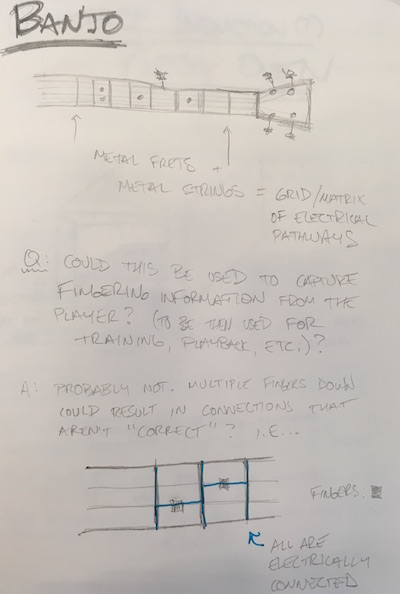 BANJO
METAL FRETS +
METAL STRINGS = GRID/MATRIX
OF ELECTRICAL
PATHWAYS
Q: COULD THIS BE USED TO CAPTURE
FINGERING INFORMATION FROM THE
PLAYER? (TO BE THEN USED FOR
TRAINING, PLAYBACK, ETC.)?
A: PROBABLY NOT. MULTIPLE FINGERS DOWN
COULD RESULT IN CONNECTIONS THAT
AREN'T "CORRECT"? I.E...
FINGERS:
ALL ARE
ELECTRICALLY
CONNECTED